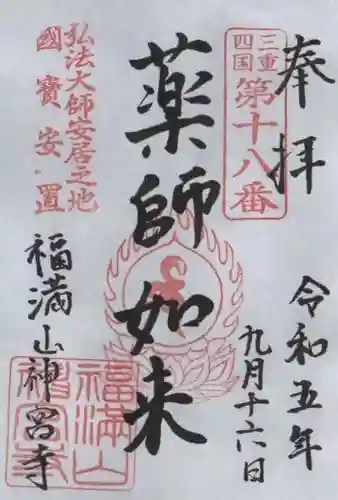 奉拝
三重
四国
第十八番
令和五年
九月十六日
薬師如来
弘法大師安居之地
國寳安置
福満山神宮寺
福満山
神宮寺